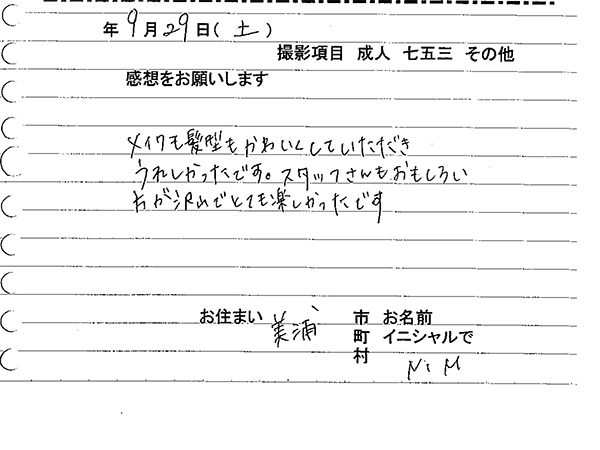 年 9月29日(土)
撮影項目 成人 七五三 その他
感想をお願いします
メイクも髪型もかわいくしていただき
うれしかったです。スタッフさんもおもしろい
方が沢山でとても楽しかったです
お住まい 美浦 市 お名前
町 イニシャルで
村 N.M